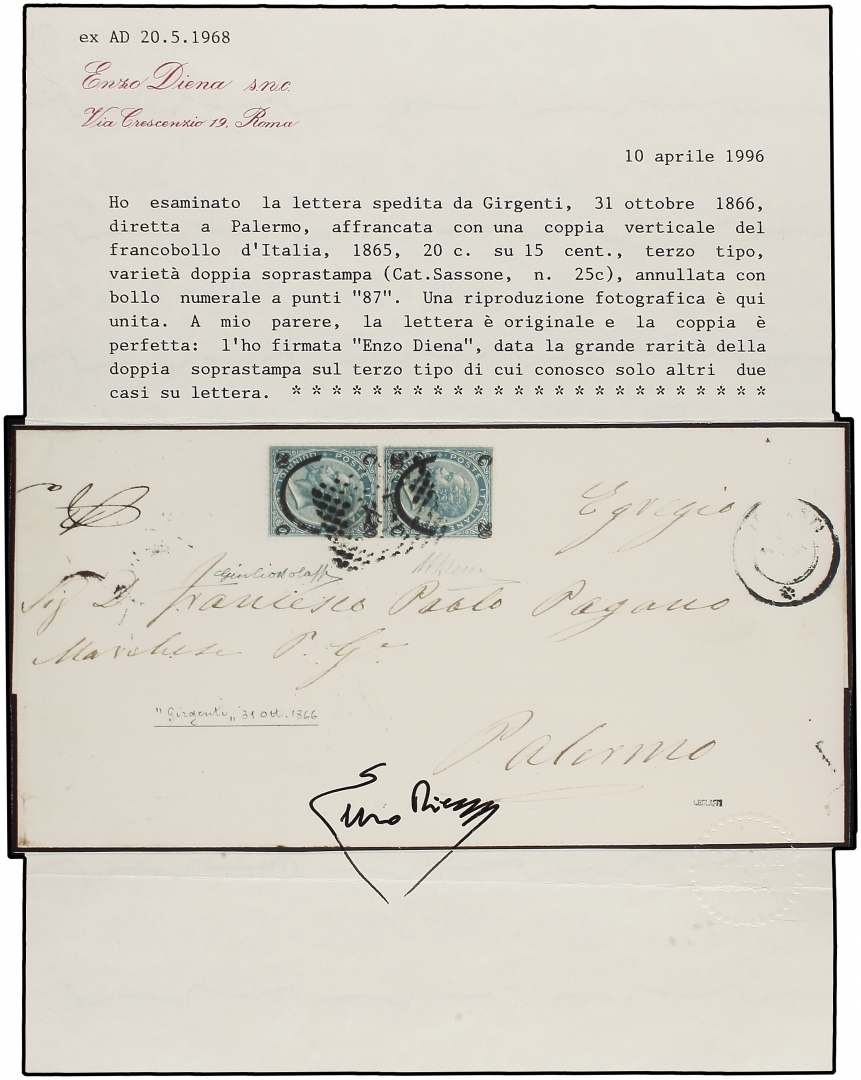 ex AD 20.5.1968
Enzo Diena s.n.c.
Via Crescenzio 19, Roma
10 aprile 1996
Ho esaminato la lettera spedita da Girgenti, 31 ottobre 1866,
diretta a Palermo, affrancata con una coppia verticale del
francobollo d'Italia, 1865, 20 c. su 15 cent., terzo tipo,
varietà doppia soprastampa (Cat.Sassone, n. 25c), annullata con
bollo numerale a punti "87". Una riproduzione fotografica è qui
unita. A mio parere, la lettera è originale e la coppia è
perfetta: l'ho firmata "Enzo Diena", data la grande rarità della
doppia soprastampa sul terzo tipo di cui conosco solo altri due
casi su lettera. * * * * * * * * * * * * * * * * * * * * * * * *
POSTE ITALIANE
POSTE ITALIANE
Egregio
Giulio Bolaffi
Sig D. Francesco Paolo Pagano
Marchese P. Ge
"Girgenti„ 31 Ott. 1866
Palermo
Enzo Diena
GBOLAFFI